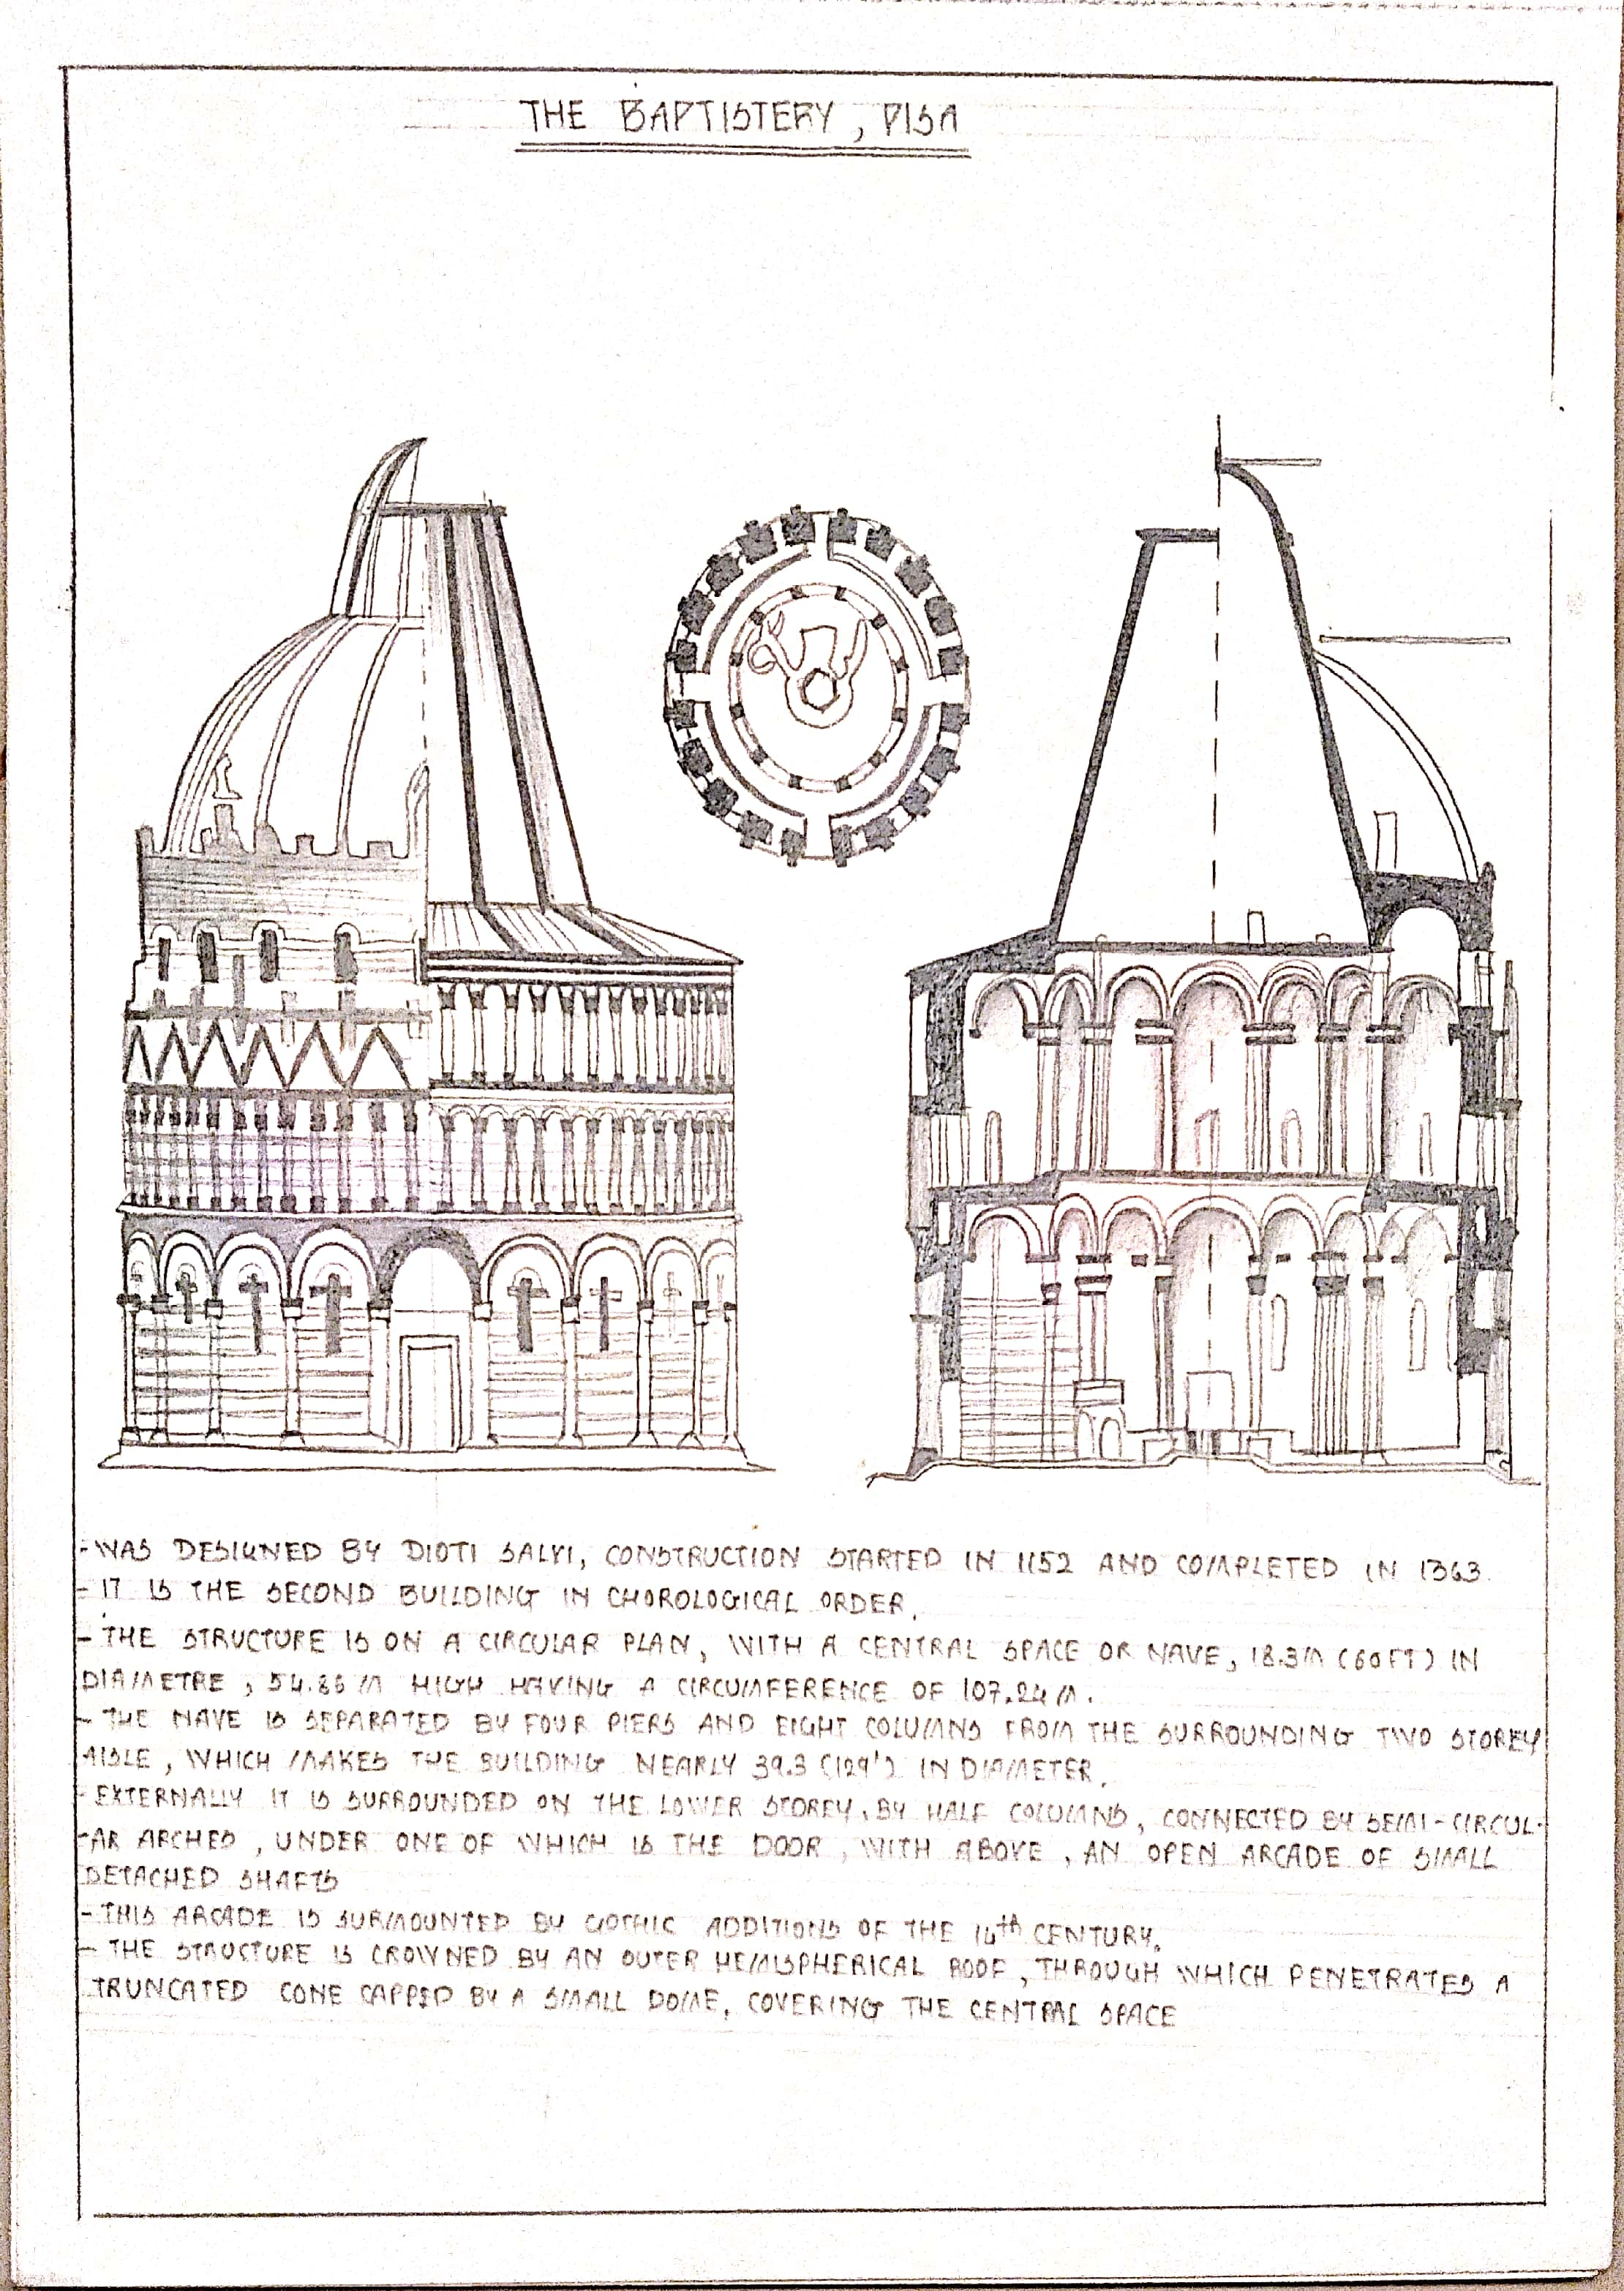 THE BAPTISTERY, PISA
- WAS DESIGNED BY DIOTI SALVI, CONSTRUCTION STARTED IN 1152 AND COMPLETED IN 1363.
- IT IS THE SECOND BUILDING IN CHOROLOGICAL ORDER.
- THE STRUCTURE IS ON A CIRCULAR PLAN, WITH A CENTRAL SPACE OR NAVE, 18.3M (60FT) IN
DIAMETRE, 54.86 M HIGH HAVING A CIRCUMFERENCE OF 107.24 M.
- THE NAVE IS SEPARATED BY FOUR PIERS AND EIGHT COLUMNS FROM THE SURROUNDING TWO STOREY
AISLE, WHICH MAKES THE BUILDING NEARLY 39.3 (129') IN DIAMETER.
- EXTERNALLY IT IS SURROUNDED ON THE LOWER STOREY, BY HALF COLUMNS, CONNECTED BY SEMI-CIRCUL-
-AR ARCHES, UNDER ONE OF WHICH IS THE DOOR, WITH ABOVE, AN OPEN ARCADE OF SMALL
DETACHED SHAFTS
- THIS ARCADE IS SURMOUNTED BY GOTHIC ADDITIONS OF THE 14th CENTURY.
- THE STRUCTURE IS CROWNED BY AN OUTER HEMISPHERICAL ROOF, THROUGH WHICH PENETRATES A
TRUNCATED CONE CAPPED BY A SMALL DOME, COVERING THE CENTRAL SPACE